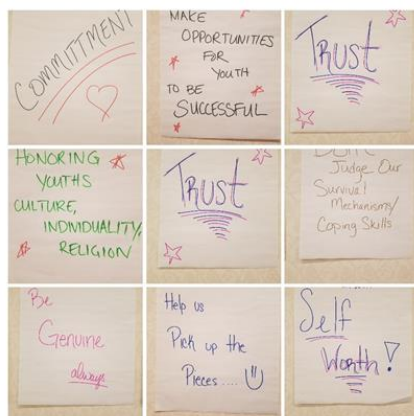 COMMITTMENT
MAKE
OPPORTUNITIES
FOR
YOUTH
TO BE
SUCCESSFUL
TRUST
HONORING
YOUTHS
CULTURE,
INDIVIDUALITY,
RELIGION
TRUST
Don't
Judge Our
Survival
Mechanisms/
Coping Skills
Be
Genuine
always
Help us
Pick up the
Pieces....
Self
Worth!